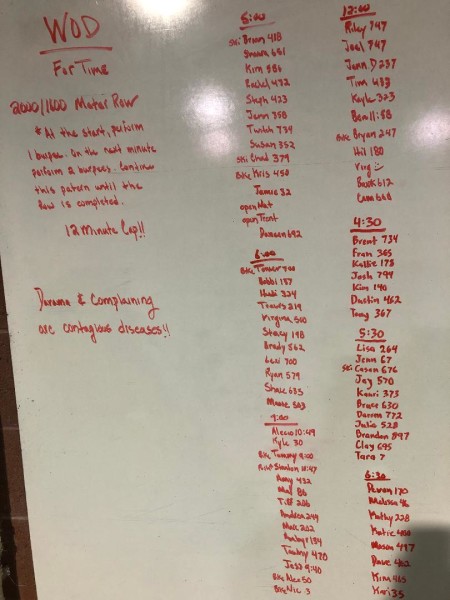 WOD
For Time
2000/1600 Meter Row
* At the start, perform
1 burpee. On the next minute
perform 2 burpees. Continue
this patern until the
Row is completed.
12 Minute Cap!!
Drama & Complaining
are contagious diseases!!
5:00
Ski Brian 418
Shawn 651
Kim 586
Rachel 432
Steph 423
Jenn 358
734
Susan 352
Ski Chad 379
Bike Kris 450
Jamie 32
open Mat
open Trent
Doreen 692
6:00
Bike
Bobbi 157
324
Travis 219
Virginia 500
Stacy 198
Brady 562
Lexi 700
Ryan 579
635
503
9:00
Alecia 10:49
Kyle 30
Bike Tammy 9:00
Bike Shanlon 10:47
Amy 432
86
Tiff 206
249
202
134
470
Jess 9:40
Bike Alex 50
Bike Nic 3
12:00
Riley 747
Joel 747
Jenn D 237
Tim 433
Kayle 323
Ben 11:58
Bike Bryan 247
Hil 180
Virg
612
Cam 600
4:30
Brent 734
Fran 365
Kallie 178
Josh 794
Kim 140
Dustin 462
Tony 367
5:30
Lisa 264
Jenn 67
Ski Casan 676
Jay 570
Kauri 373
Bruce 630
Darren 772
Julia 528
Brandon 897
Clay 695
Tara 7
6:30
170
Melissa
Kathy 228
Katie
Mason 497
Dave 402
Kim 465
Kari 35